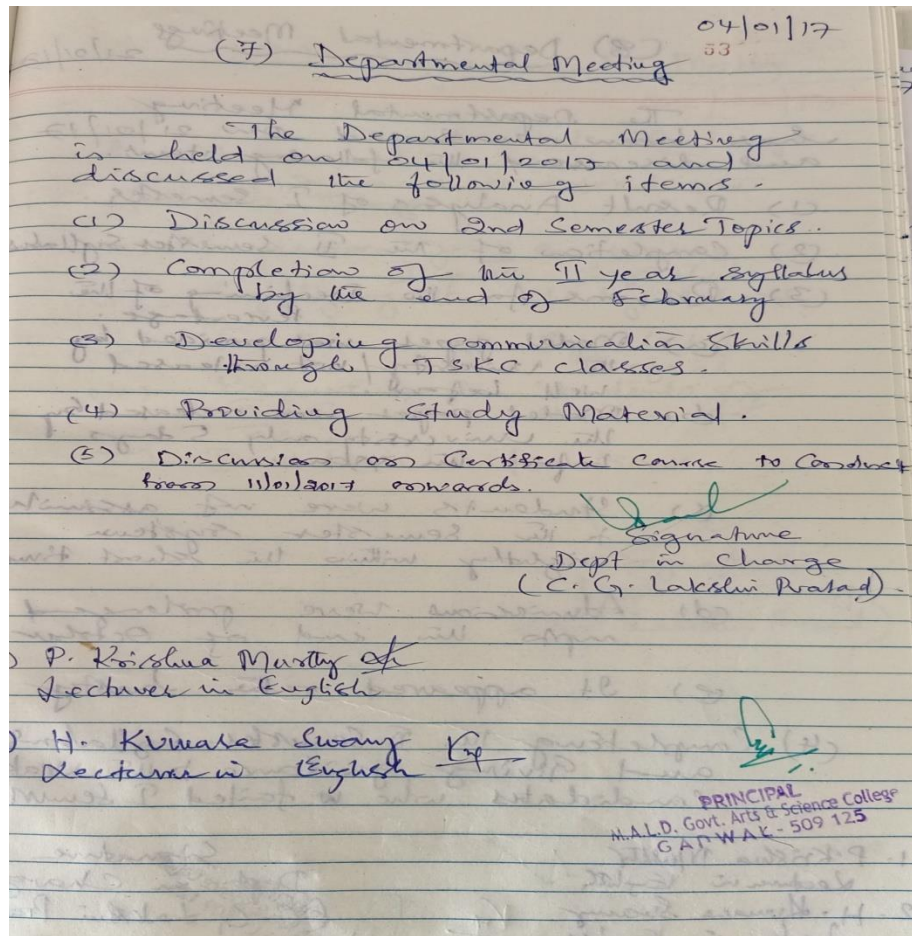 04/01/17
53
(7) Departmental Meeting
The Departmental Meeting
is held on 04/01/2017 and
discussed the following items.
(1) Discussion on 2nd Semester Topics.
(2) Completion of the II year syllabus
by the end of February
(3) Developing communication Skills
through TSKC classes.
(4) Providing Study Material.
(5) Discussion on Certificate course to Conduct
from 11/01/2017 onwards.
Signature
Dept in charge
(C. G. Lakshmi Prasad).
) P. Krishna Murthy
Lecturer in English
) H. Kumara Swamy
Lecturer in English
PRINCIPAL
M.A.L.D. Govt. Arts & Science College
GADWAL - 509 125